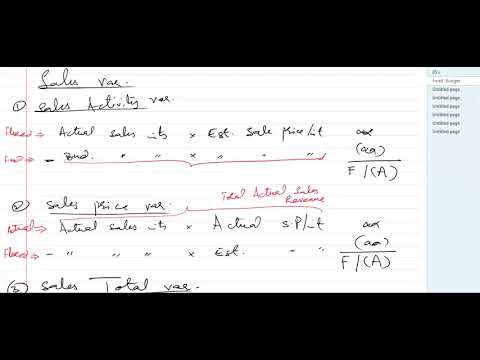 Sales var.
① Sales Activity var.
Flexed ⇒ Actual sales uts × Est. Sale price/ut xxx
Fixed ⇒ - Bud. " " × " " " (xx)
F/(A)
Total Actual Sales Revenue
② Sales price var.
Actual ⇒ Actual sales uts × Actual S.P/ut xxx
Flexed ⇒ - " " " × Est. " " (xx)
F/(A)
③ Sales Total var.
Fixed Budget
Untitled page
Untitled page
Untitled page
Untitled page
Untitled page
Untitled page